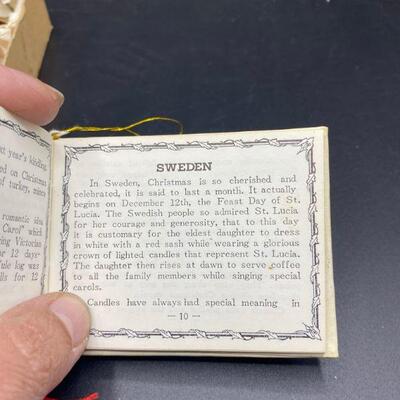 xt year's kindling
ed on Christmas
of turkey, mince
romantic idea
Carol" which
ring Victorian
for 12 days-
ule log was
lls for 12
SWEDEN
In Sweden, Christmas is so cherished and
celebrated, it is said to last a month. It actually
begins on December 12th, the Feast Day of St.
Lucia. The Swedish people so admired St. Lucia
for her courage and generosity, that to this day
it is customary for the eldest daughter to dress
in white with a red sash while wearing a glorious
crown of lighted candles that represent St. Lucia.
The daughter then rises at dawn to serve coffee
to all the family members while singing special
carols.
Candles have always had special meaning in
— 10 —